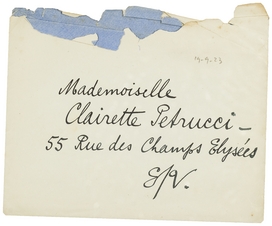 19.9.23
Mademoiselle
Clairette Petrucci –
55 Rue des Champs Elysées
E/V.